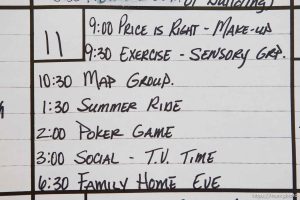 of building)
11
9:00 PRICE IS RIGHT - MAKE-UP
9:30 EXERCISE - SENSORY GRP.
10:30 MAP GROUP.
1:30 SUMMER RIDE
2:00 POKER GAME
3:00 SOCIAL - T.V. TIME
6:30 FAMILY HOME EVE